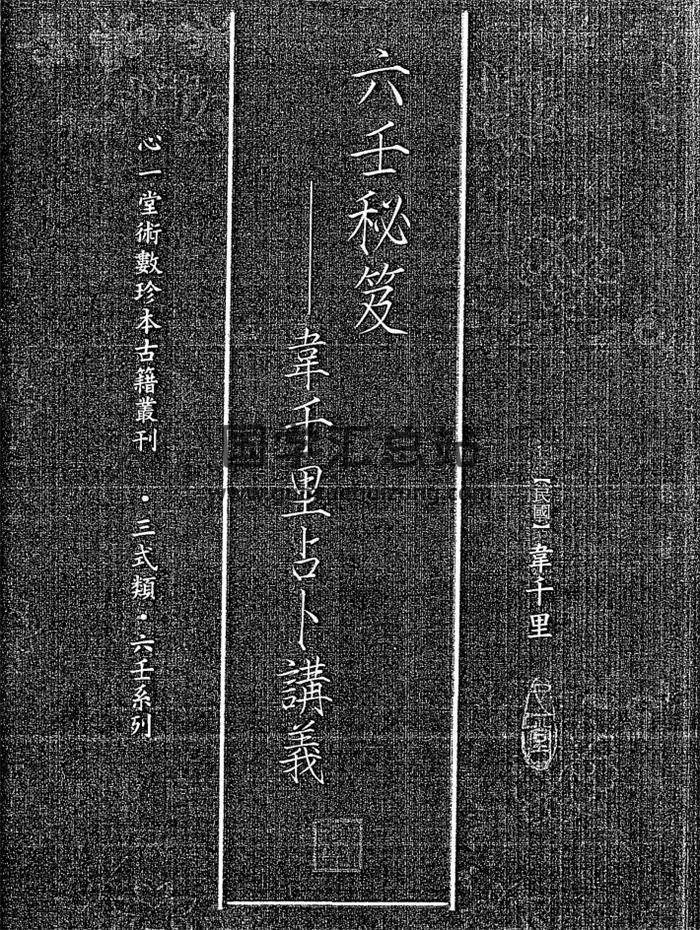 【民國】韋千里
六壬秘笈
——韋千里占卜講義
心一堂術數珍本古籍叢刊 ·三式類·六壬系列
国学汇总站